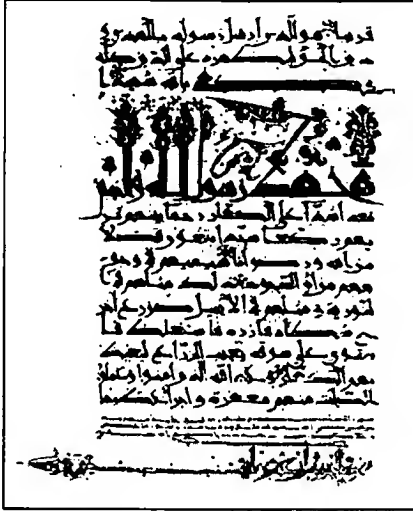 قريبا هو الذي أرسل رسوله بالهدى و
دين الحق ليظهره على الدين كله
و كفى بالله شهيدا
محمد رسول الله والذين
معه أشداء على الكفار رحماء بينهم تر
يهم ركعا سجدا يبتغون فضلا
من الله ورضوانا سيماهم في وجو
ههم من أثر السجود ذلك مثلهم في ا
لتورية ومثلهم في الإنجيل كزرع أخر
ج شطأه فآزره فاستغلظ فا
ستوى على سوقه يعجب الزراع ليغيظ
بهم الكفار وعد الله الذين آمنوا وعملوا
الصلحت منهم مغفرة وأجرا عظيما